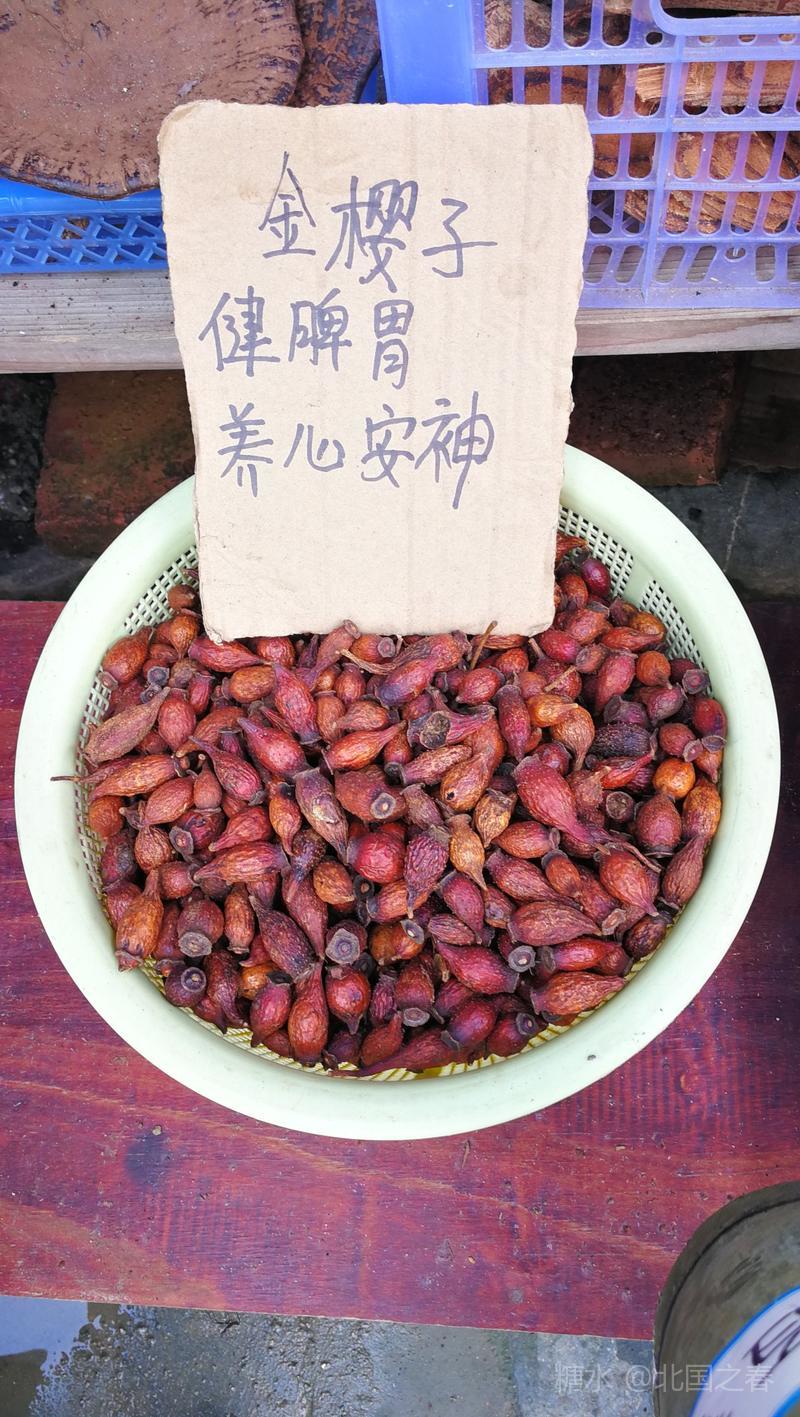 金樱子
健脾胃
养心安神
糖水 @北国之春